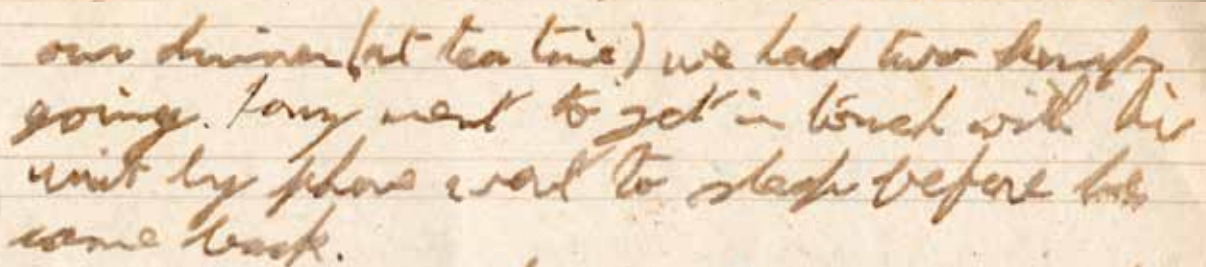 our dinner (at tea time) we had two lamps
going. Tony went to get in touch with his
unit by phone went to sleep before he
came back.